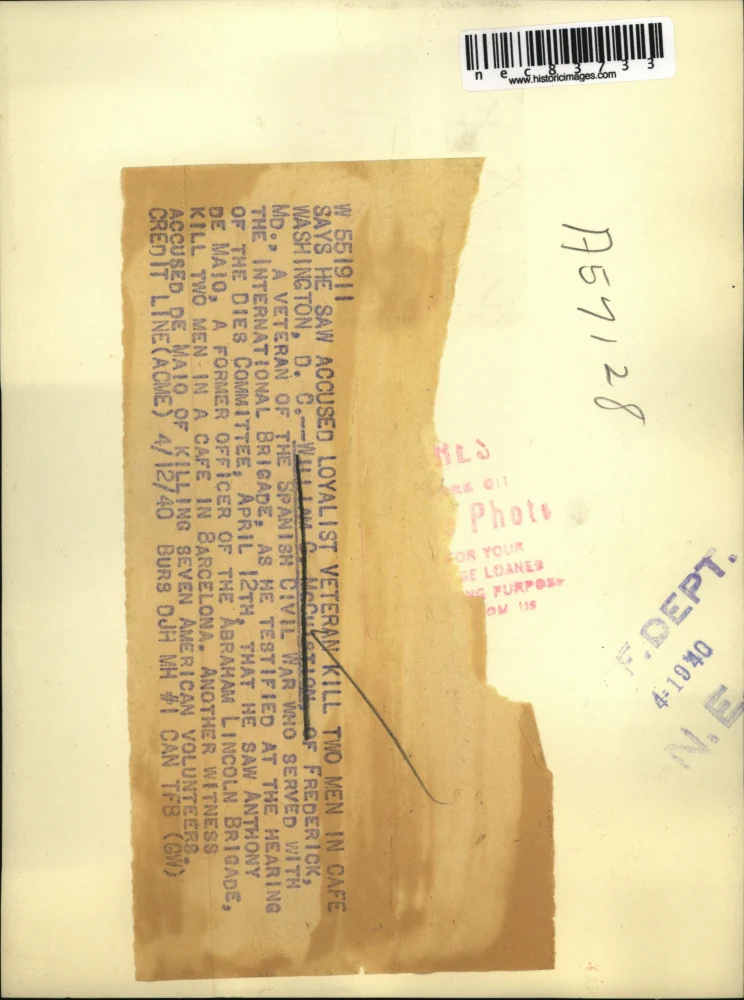 nec83733
www.historicimages.com
A57128
W 551911
SAYS HE SAW ACCUSED LOYALIST VETERAN KILL TWO MEN IN CAFE
WASHINGTON, D. C.--WILLIAM C. MCCUISTION, OF FREDERICK,
MD., A VETERAN OF THE SPANISH CIVIL WAR WHO SERVED WITH
THE INTERNATIONAL BRIGADE, AS HE TESTIFIED AT THE HEARING
OF THE DIES COMMITTEE, APRIL 12TH, THAT HE SAW ANTHONY
DE MAIO, A FORMER OFFICER OF THE ABRAHAM LINCOLN BRIGADE,
KILL TWO MEN IN A CAFE IN BARCELONA. ANOTHER WITNESS
ACCUSED DE MAIO OF KILLING SEVEN AMERICAN VOLUNTEERS.
CREDIT LINE(ACME) 4/12/40 BURS DJH MH #1 CAN TFB (GW)
Photo
FOR YOUR
LOANED
PURPOSE
US
DEPT.
4-1940
N.E